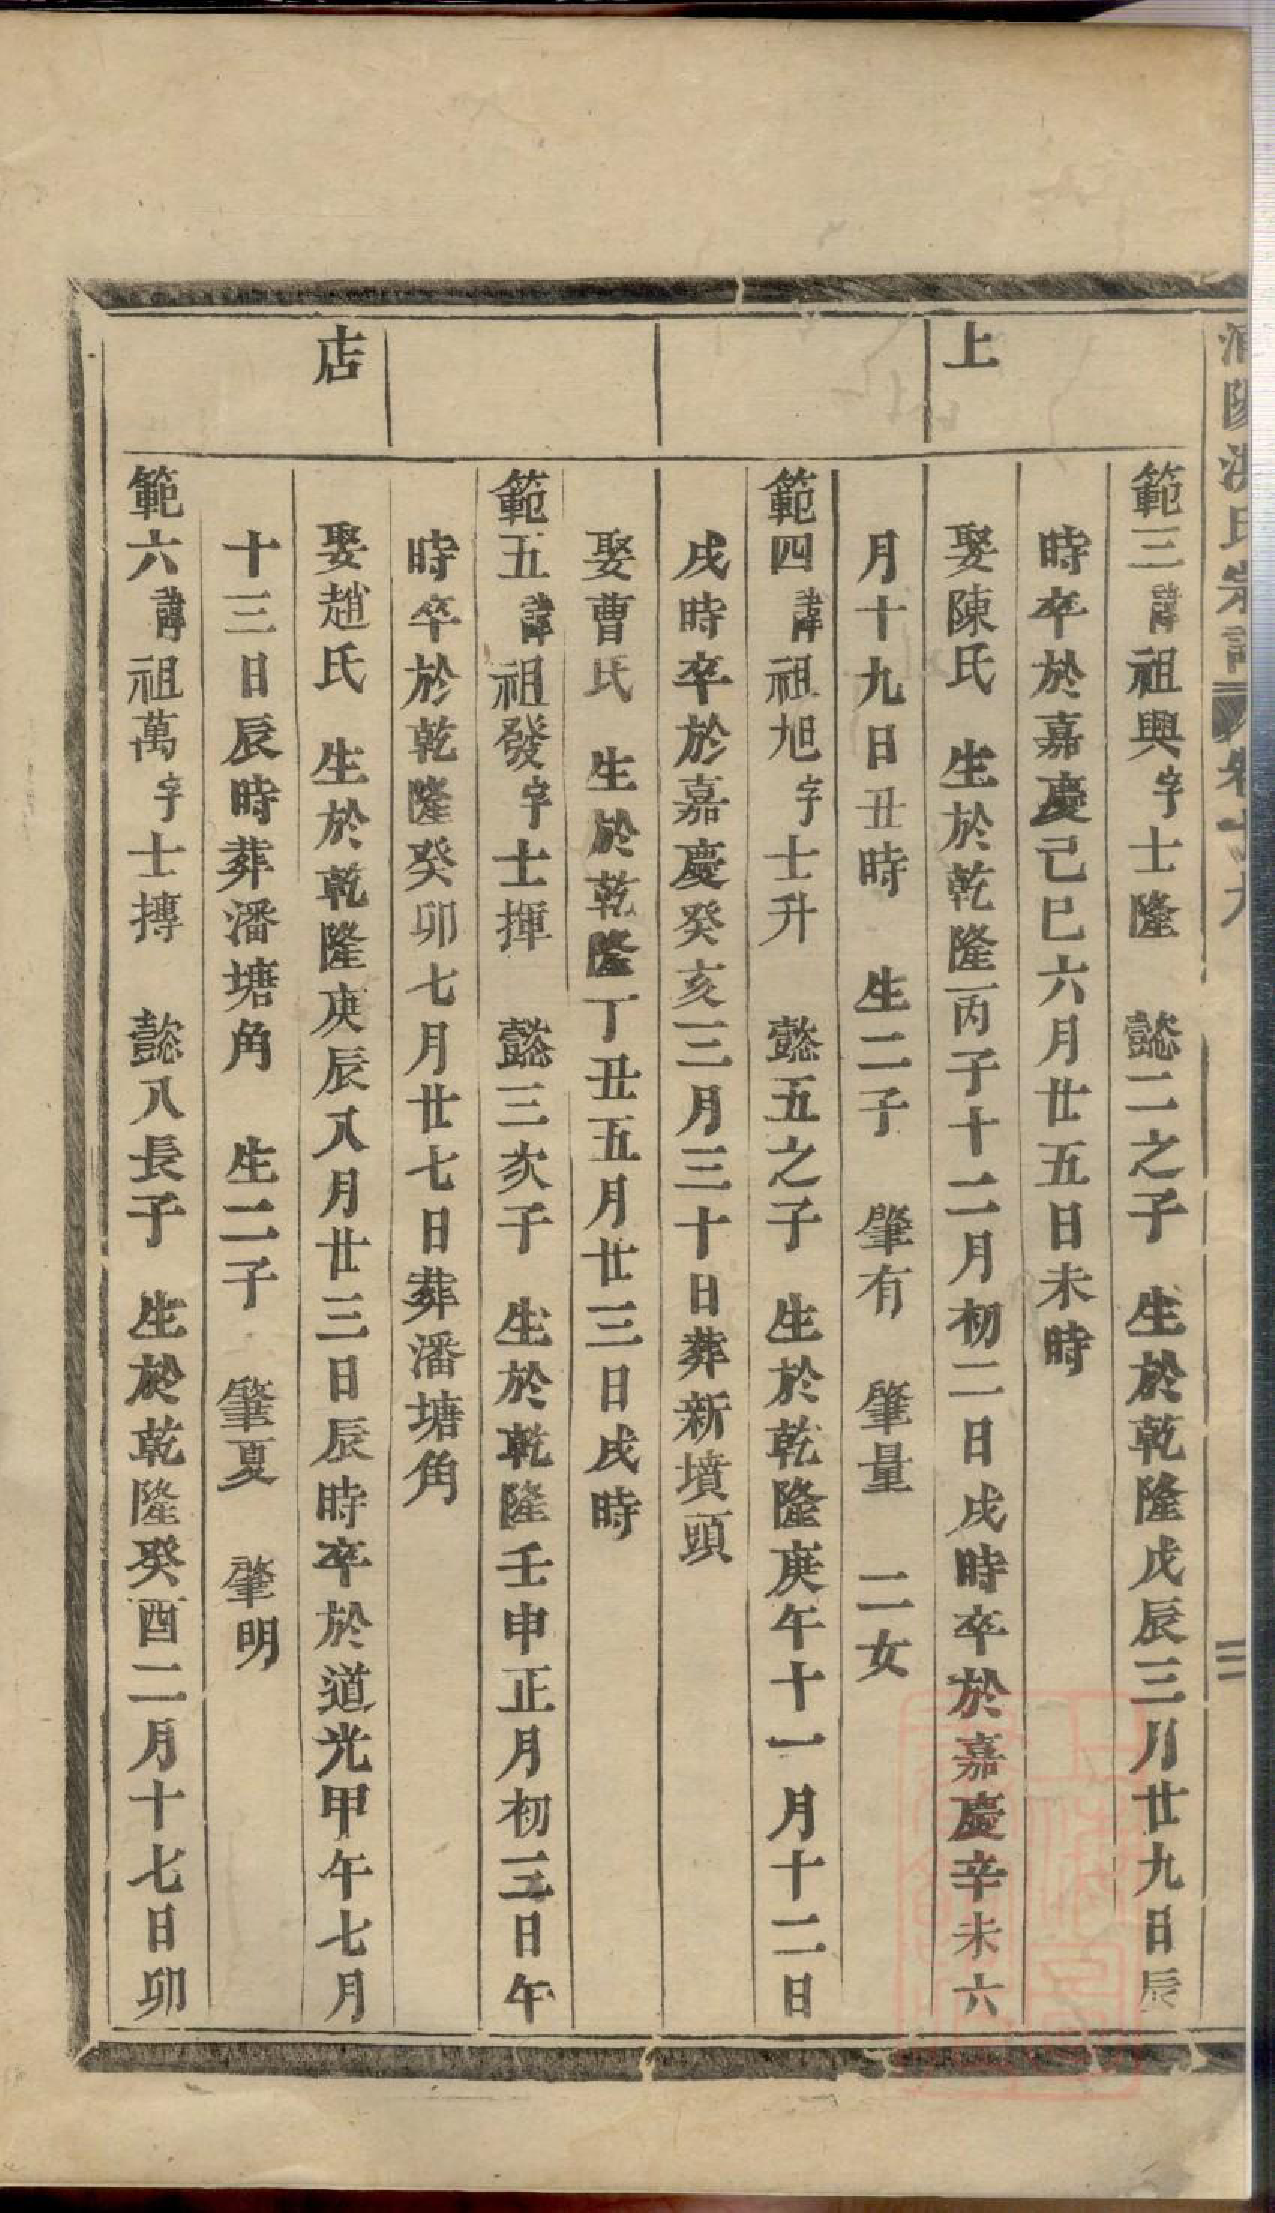 浦陽洪氏宗譜 卷十九 二
上
店
範三諱祖興字士隆 懿二之子 生於乾隆戊辰三月廿九日辰
時卒於嘉慶己巳六月廿五日未時
娶陳氏 生於乾隆丙子十二月初二日戌時卒於嘉慶辛未六
月十九日丑時 生二子 肇有 肇量 二女
範四諱祖旭字士升 懿五之子 生於乾隆庚午十一月十二日
戌時卒於嘉慶癸亥三月三十日葬新墳頭
娶曹氏 生於乾隆丁丑五月廿三日戌時
範五諱祖發字士揮 懿三次子 生於乾隆壬申正月初三日午
時卒於乾隆癸卯七月廿七日葬潘塘角
娶趙氏 生於乾隆庚辰八月廿三日辰時卒於道光甲午七月
十三日辰時葬潘塘角 生二子 肇夏 肇明
範六諱祖萬字士摶 懿八長子 生於乾隆癸酉二月十七日卯